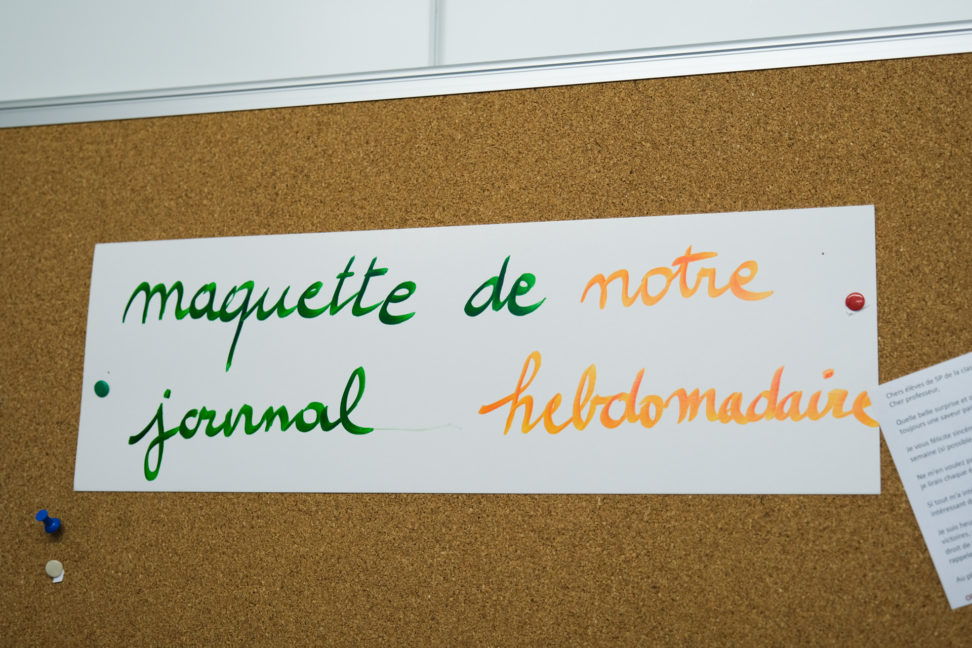 maquette de notre
journal hebdomadaire
Chers élèves de 5P de la clas
Cher professeur,
Quelle belle surprise et
toujours une saveur
Je vous félicite
semaine (si possible
Ne m'en voulez
je lirais chaque
Si tout m'a
intéressant
Je suis
victoires,
droit de
Au